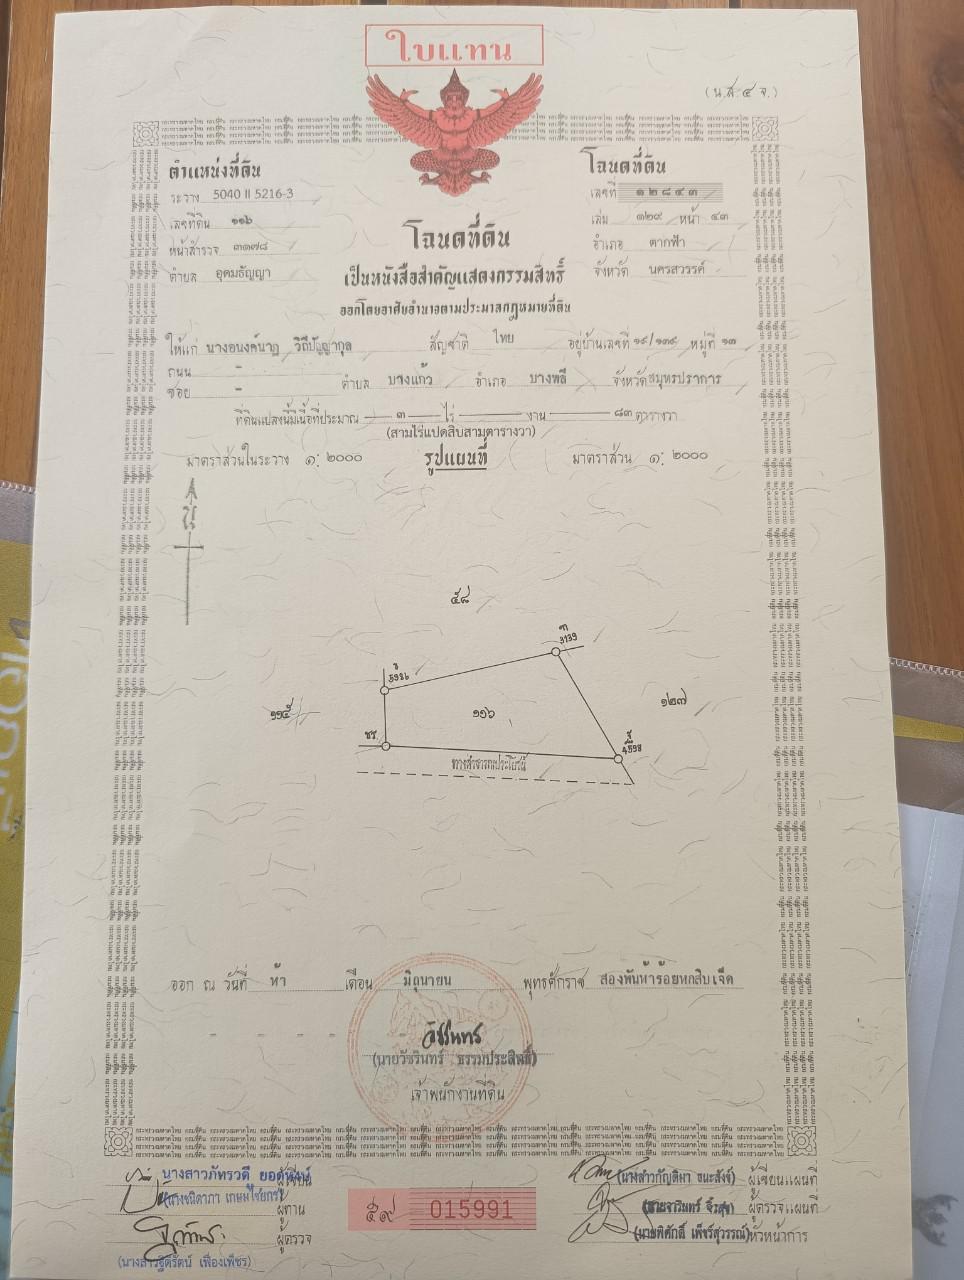 ใบแทน
(น.ส.๔ จ.)
ตำแหน่งที่ดิน
ระวาง 5040 II 5216-3
เลขที่ดิน ๑๑๖
หน้าสำรวจ ๓๑๗๘
ตำบล อุดมธัญญา
โฉนดที่ดิน
เลขที่ ๑๒๘๔๓
เล่ม ๑๒๙ หน้า ๔๓
อำเภอ ตากฟ้า
จังหวัด นครสวรรค์
โฉนดที่ดิน
เป็นหนังสือสำคัญแสดงกรรมสิทธิ์
ออกโดยอาศัยอำนาจตามประมวลกฎหมายที่ดิน
ให้แก่ นางอนงค์นาฏ วิถีปัญญากุล สัญชาติ ไทย อยู่บ้านเลขที่ ๑๙/๑๓๙ หมู่ที่ ๑๓
ถนน -
ซอย - ตำบล บางแก้ว อำเภอ บางพลี จังหวัด สมุทรปราการ
ที่ดินแปลงนี้มีเนื้อที่ประมาณ ๓ ไร่ งาน ๘๓ ตารางวา
(สามไร่แปดสิบสามตารางวา)
มาตราส่วนในระวาง ๑: ๒๐๐๐ รูปแผนที่ มาตราส่วน ๑: ๒๐๐๐
น
๕๘
๑๑๕
๑๑๖
๑๒๗
ทางสาธารณประโยชน์
ออก ณ วันที่ ห้า เดือน มิถุนายน พุทธศักราช สองพันห้าร้อยหกสิบเจ็ด
วัชรินทร์
(นายวัชรินทร์ ธรรมประสิทธิ์)
เจ้าพนักงานที่ดิน
ผู้เขียน
ผู้ทาน
ผู้ตรวจ
(นางสาวฐิติรัตน์ เฟื่องเพ็ชร)
๕๙ 015991
ผู้เขียนแผนที่
ผู้ตรวจแผนที่
(นายพิศักดิ์ เพ็ชร์สุวรรณ) หัวหน้าการ